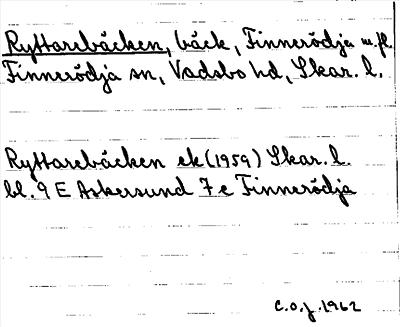 Ryttarebäcken, bäck, Finnerödja m.fl.
Finnerödja sn, Vadsbo hd, Skar. l.
Ryttarebäcken ek (1959) Skar. l.
bl. 9 E Askersund 7 e Finnerödja
C.O.J. 1962